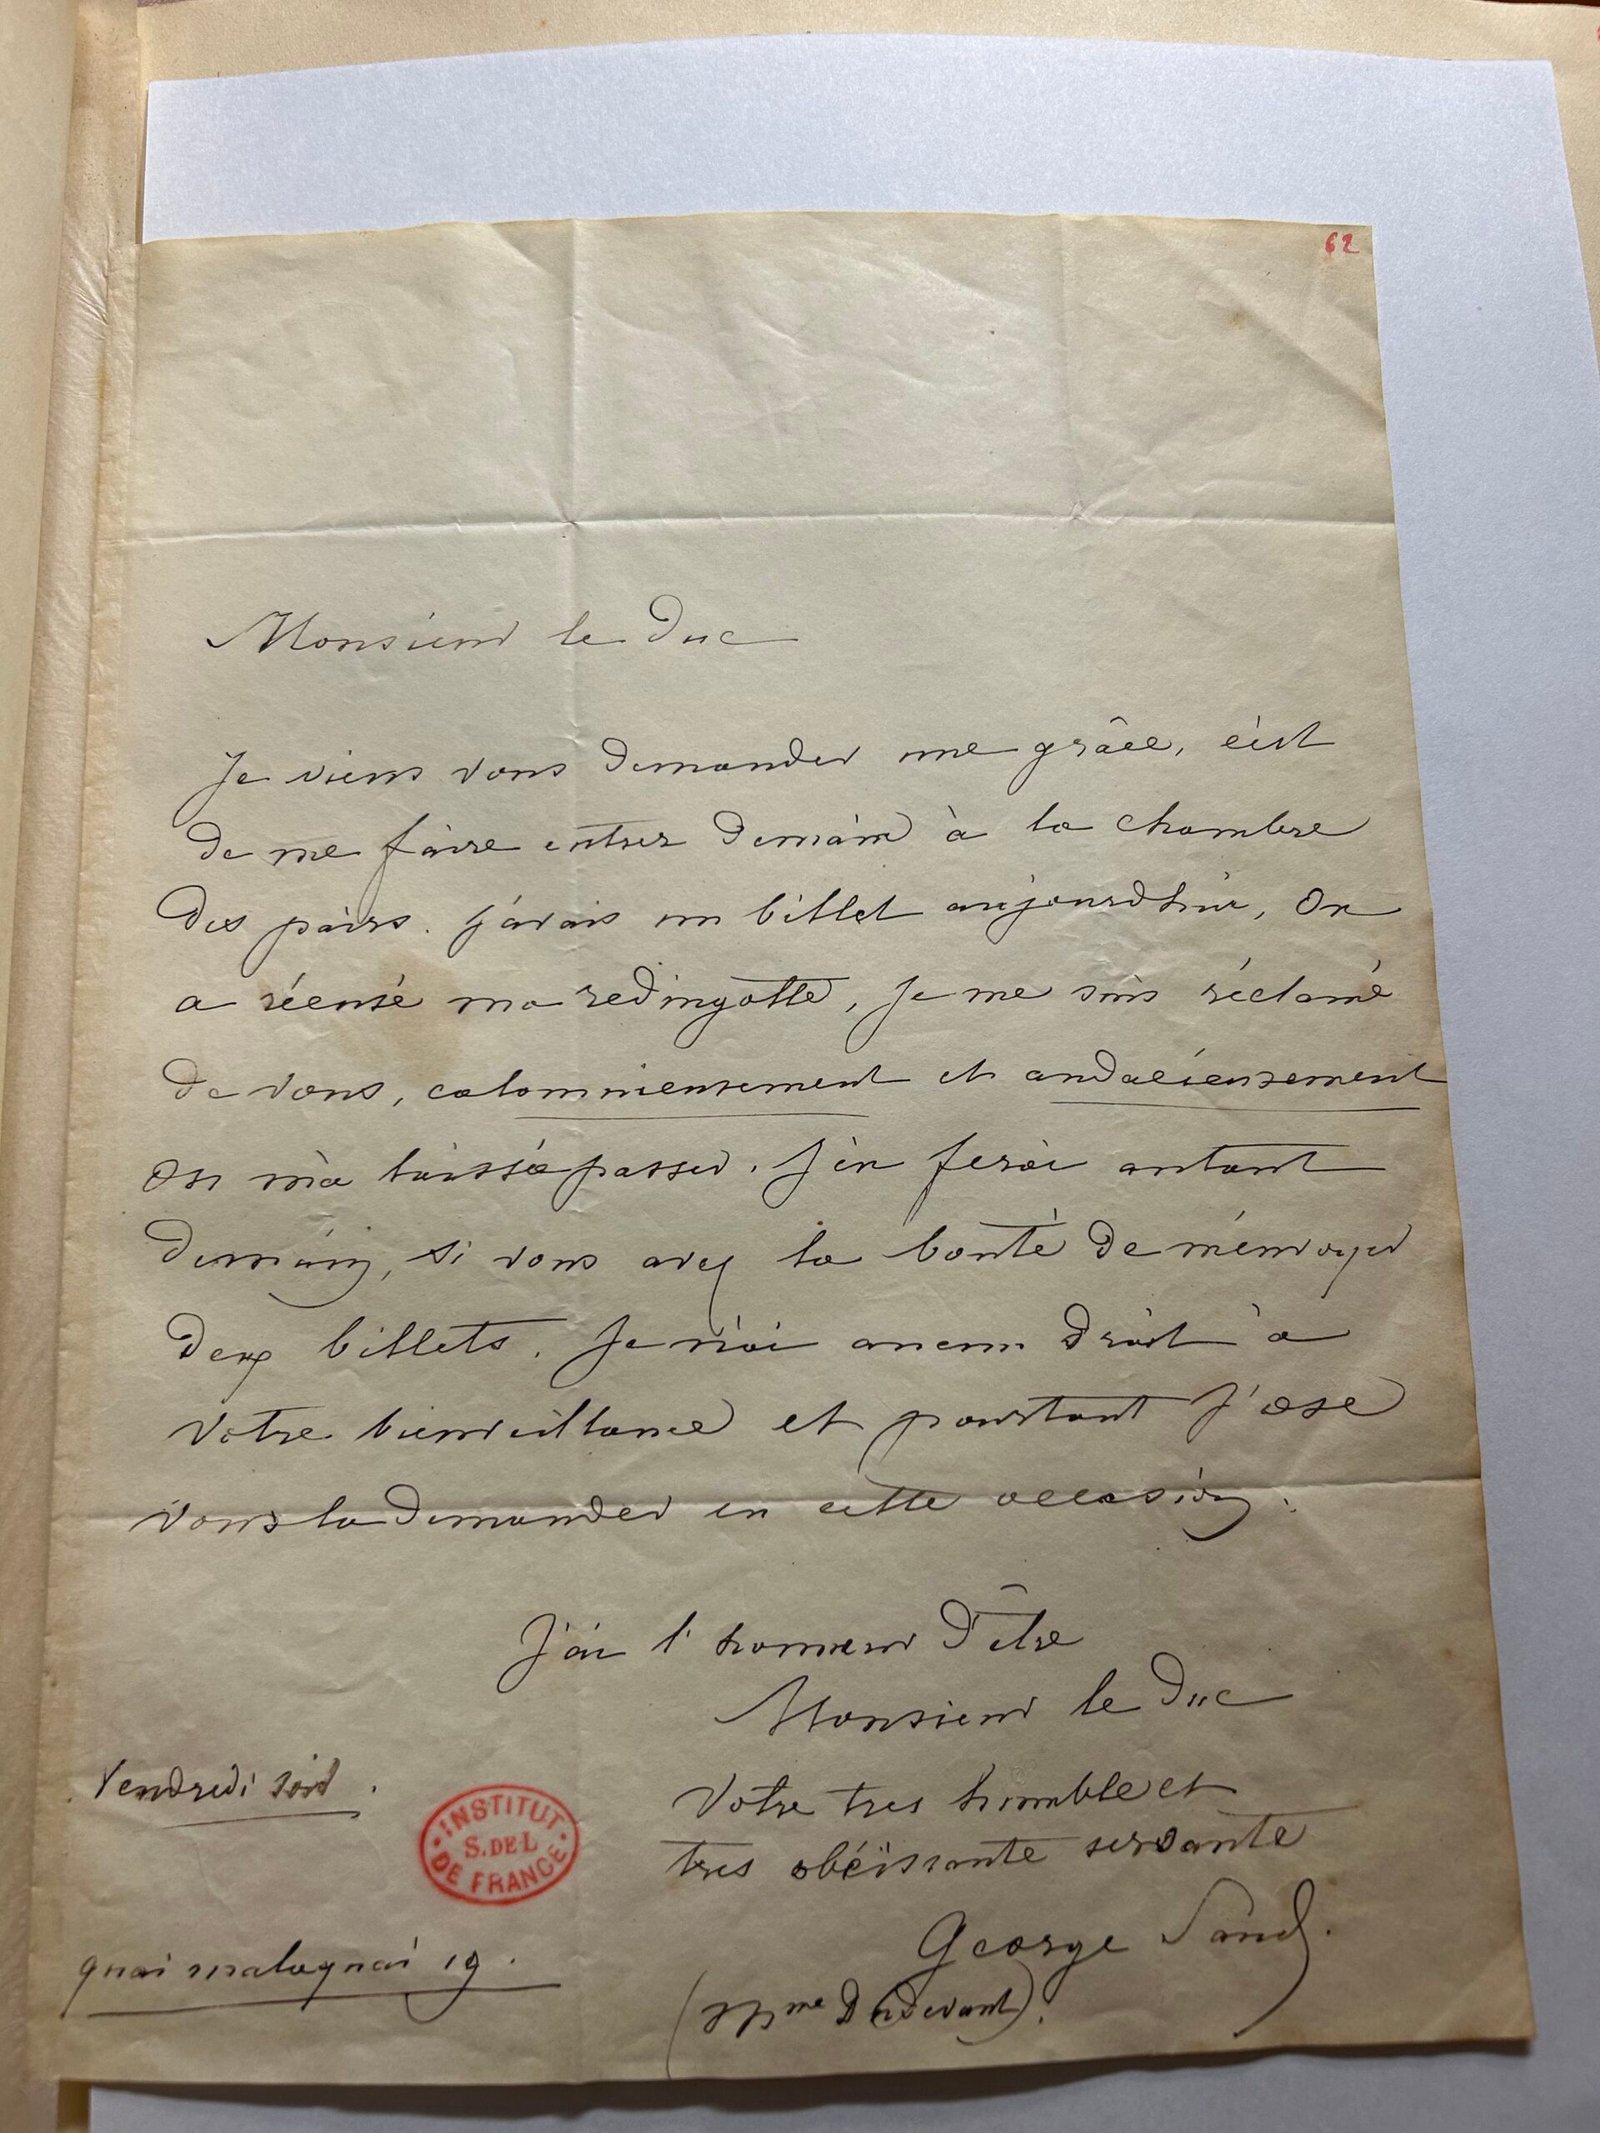 62
Monsieur le duc
Je viens vous demander une grâce, c'est
de me faire entrer demain à la chambre
des pairs. j'avais un billet aujourd'hui, on
a récusé ma redingotte, je me suis réclamé
de vous, calomnieusement et audacieusement
on m'a laissé passer. J'en ferai autant
demain, si vous avez la bonté de m'envoyer
deux billets. Je n'ai aucun droit à
votre bienveillance et pourtant j'ose
vous la demander en cette occasion.
J'ai l'honneur d'être
Monsieur le duc
Votre tres humble et
tres obéissante servante
George Sand.
(Mme Dudevant).
Vendredi soir.
quai malaquai 19.
INSTITUT
S. DE L
DE FRANCE